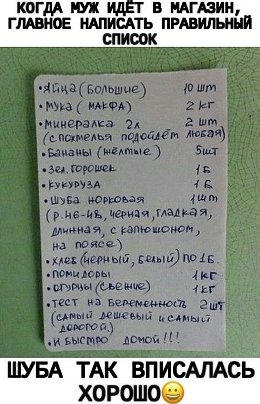 КОГДА МУЖ ИДЁТ В МАГАЗИН,
ГЛАВНОЕ НАПИСАТЬ ПРАВИЛЬНЫЙ
СПИСОК
•Яйца (Большие) 10 шт
•Мука (МАКФА) 2 кг
•Минералка 2л 2 шт
(с похмелья подойдёт любая)
•Бананы (жёлтые) 5шт
•Зел. горошек 1Б
•Кукуруза 1Б
•Шуба норковая 1шт
(р.46-48, чёрная, гладкая,
длинная, с капюшоном,
на поясе)
•хлеб (чёрный, белый) по 1Б.
•помидоры 1кг
•огурцы (свежие) 1кг
•тест на беременность 2шт
(самый дешёвый и самый
дорогой.)
•и быстро домой!!!
ШУБА ТАК ВПИСАЛАСЬ
ХОРОШО😀